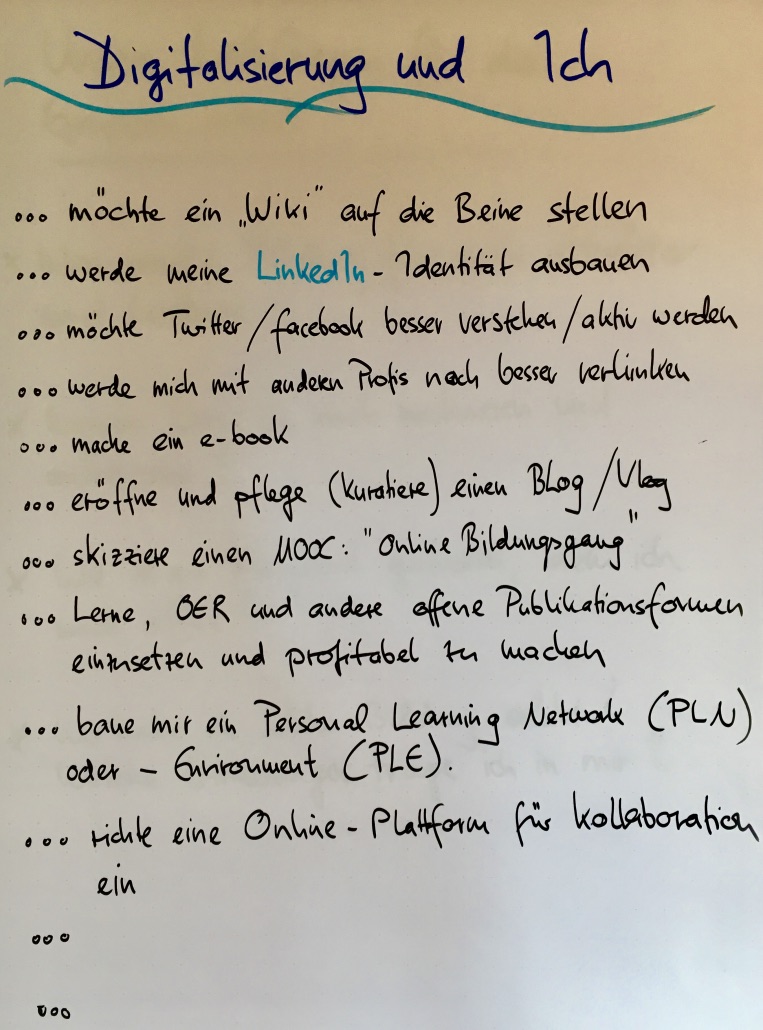 Digitalisierung und Ich
... möchte ein „Wiki" auf die Beine stellen
... werde meine LinkedIn - Identität ausbauen
... möchte Twitter / facebook besser verstehen / aktiv werden
... werde mich mit anderen Profis noch besser verlinken
... mache ein e-book
... eröffne und pflege (kuratiere) einen BLog / Vlog
... skizziere einen MOOC: "Online Bildungsgang"
... Lerne, OER und andere offene Publikationsformen
einzusetzen und profitabel zu machen
... baue mir ein Personal Learning Network (PLN)
oder - Environment (PLE).
... richte eine Online - Plattform für Kollaboration
ein
...
...